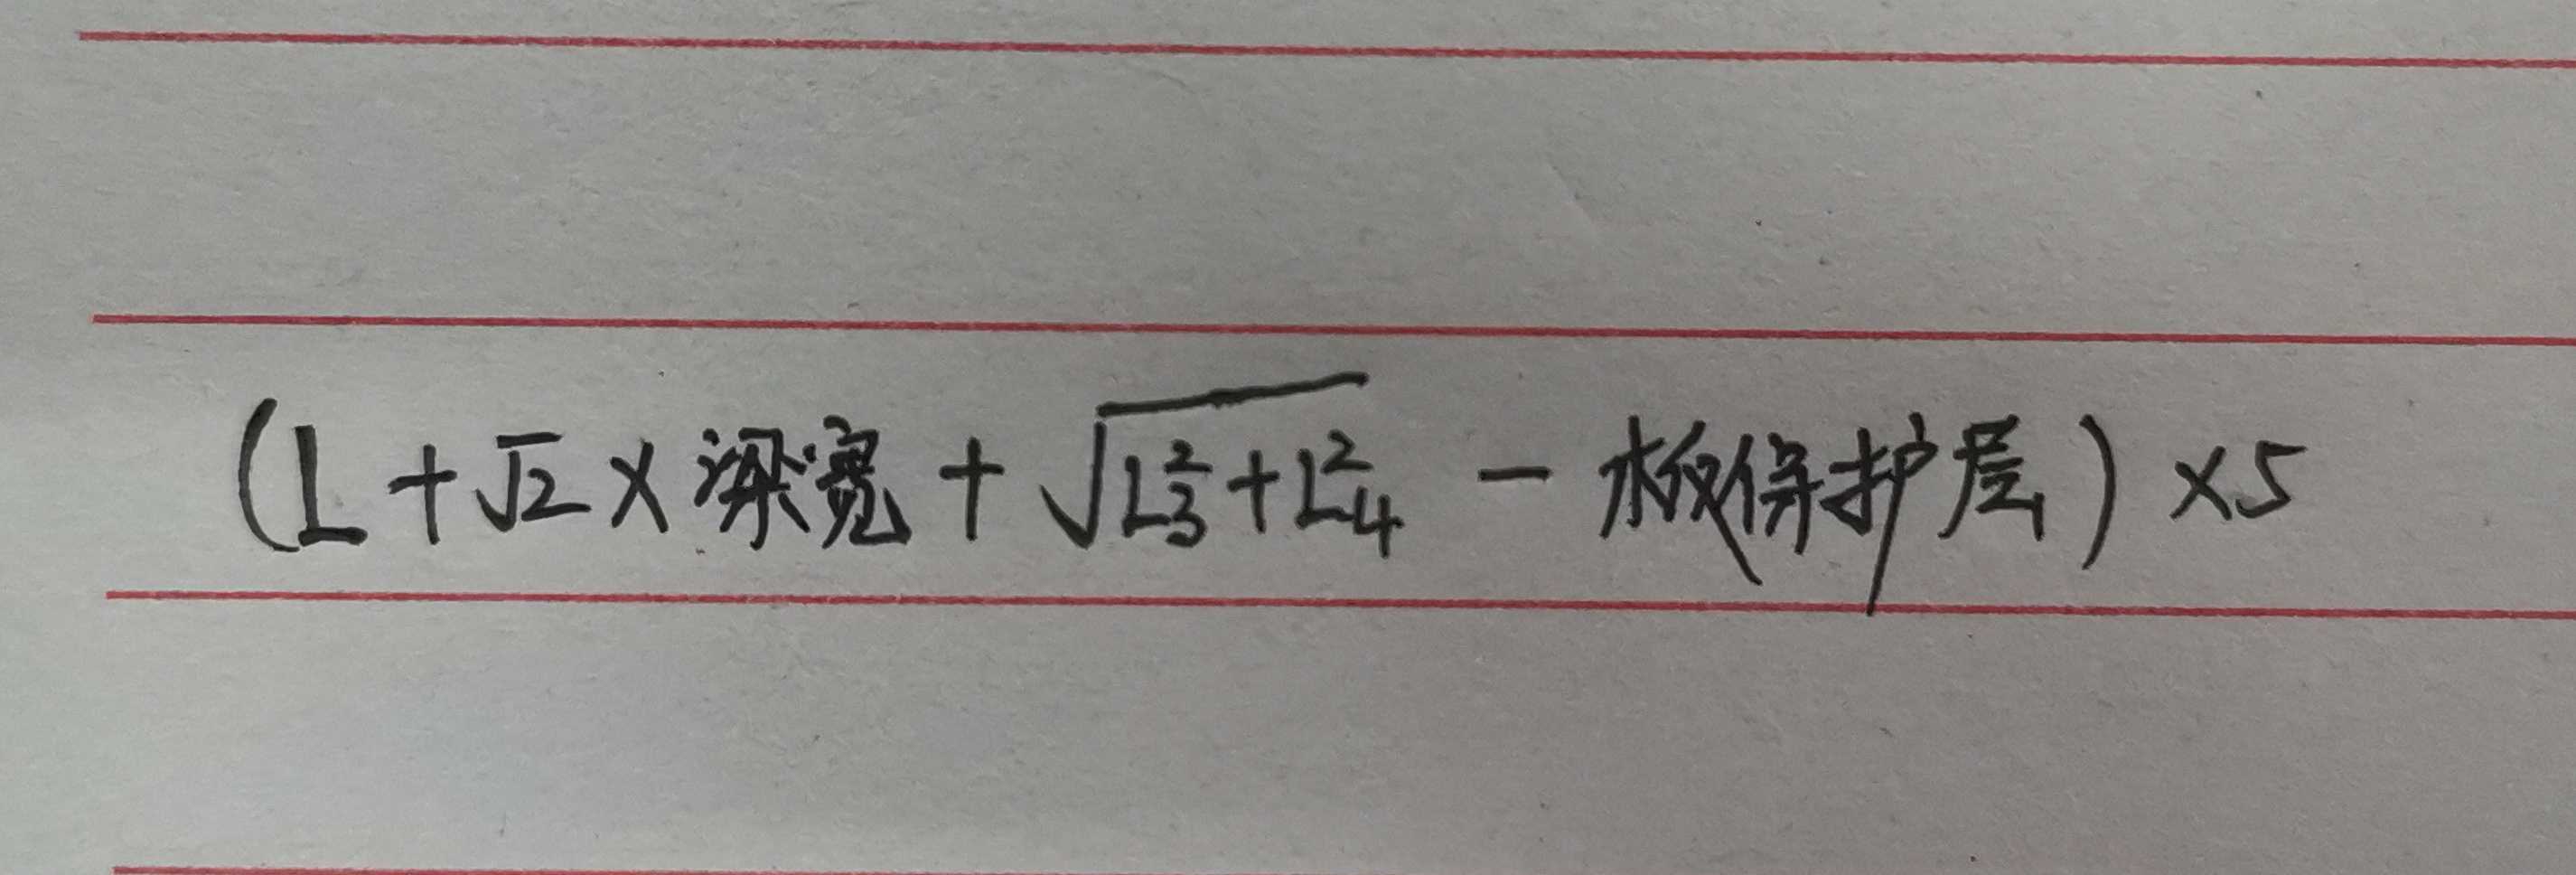 (L+√2×梁宽+√(L₃²+L₄²)-板保护层)×5